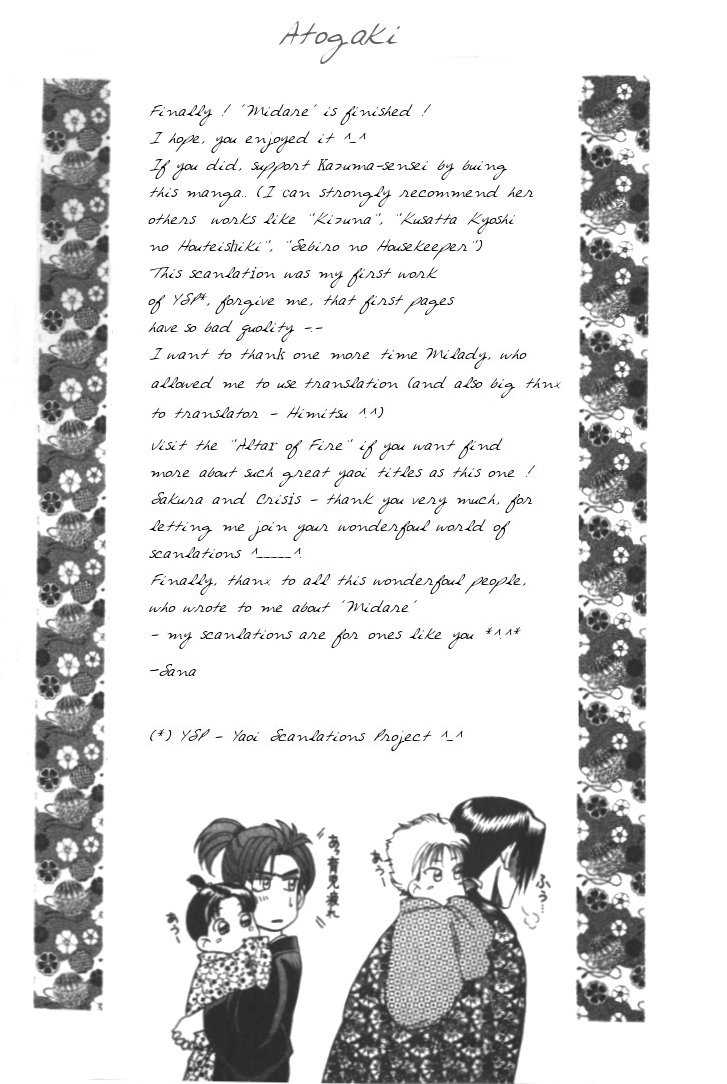 Atogaki
Finally ! 'Midare' is finished !
I hope, you enjoyed it ^_^
If you did, support Kazuma-sensei by buing
this manga.. (I can strongly recommend her
others works like "Kizuna", "Kusatta Kyoshi
no Houteishiki", "Sebiro no Housekeeper")
This scanlation was my first work
of YSP*, forgive me, that first pages
have so bad quolity -.-
I want to thank one more time Milady, who
allowed me to use translation (and also big thnx
to translator - Himitsu ^.^)
Visit the "Altar of Fire" if you want find
more about such great yaoi titles as this one !
Sakura and Crisis - thank you very much, for
letting me join your wonderfoul world of
scanlations ^_____^.
Finally, thanx to all this wonderfoul people,
who wrote to me about 'Midare'
- my scanlations are for ones like you *^.^*
-Sana
(*) YSP - Yaoi Scanlations Project ^_^
あっ育児疲れ
あぅー
あぅー
ふぅ…